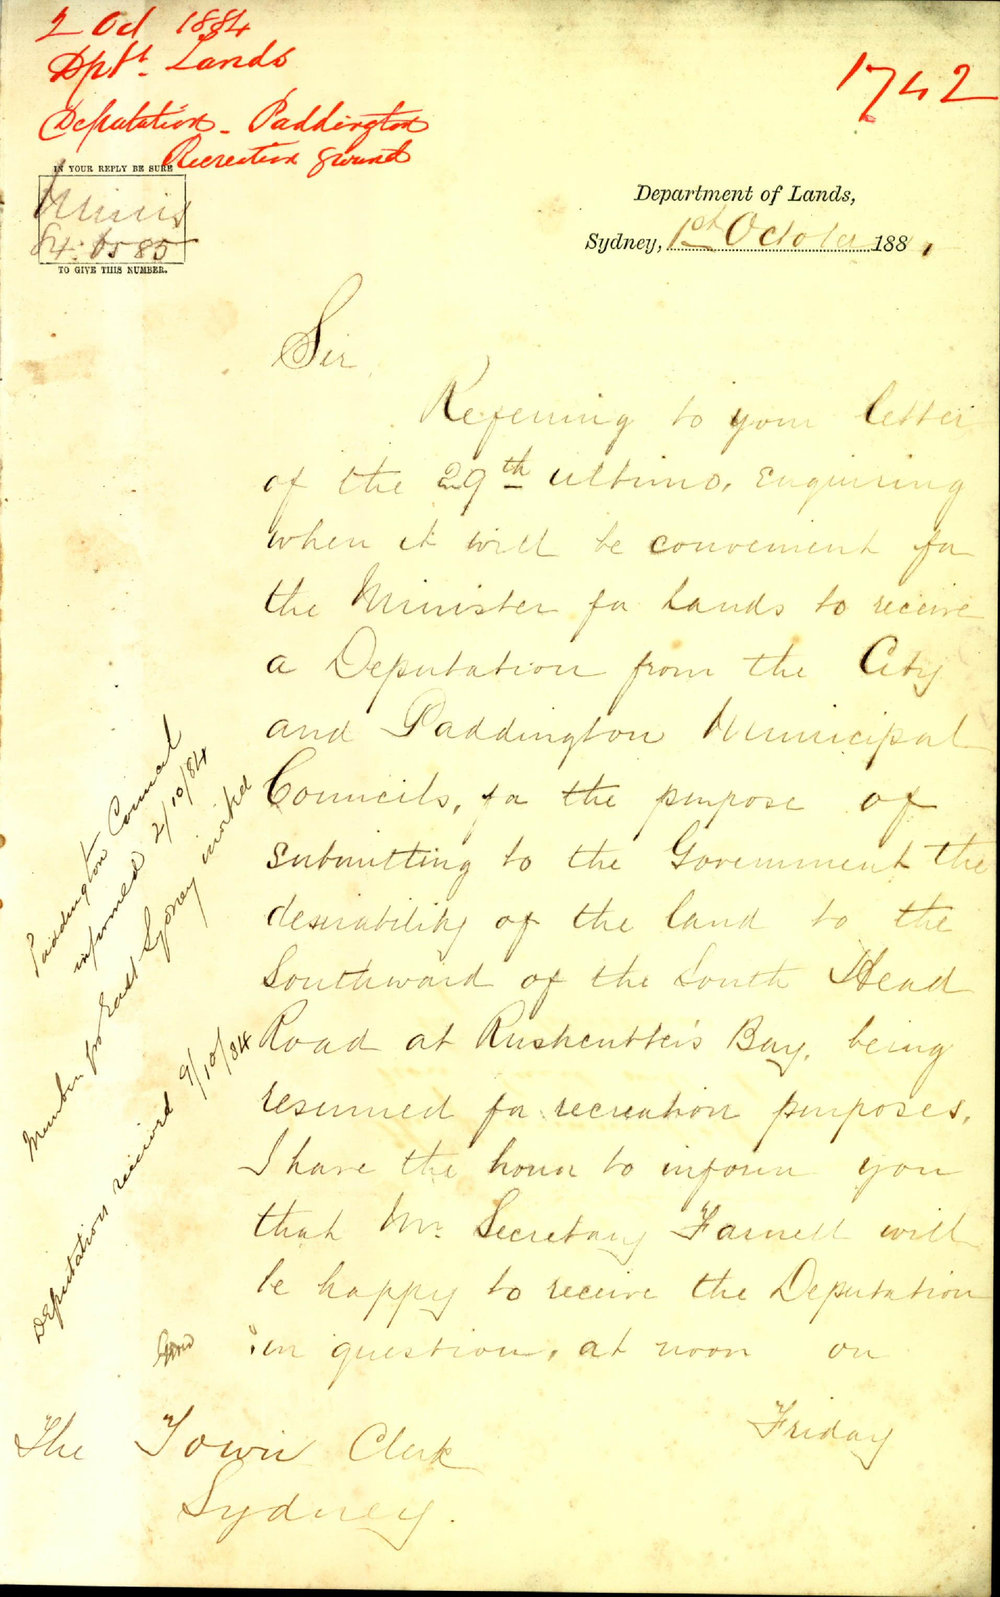 2 Oct 1884
Dpt. Lands
Deputation - Paddington
Recreation ground
1742
IN YOUR REPLY BE SURE
Minis
84.
TO GIVE THIS NUMBER.
Department of Lands,
Sydney, 1st October 188
Sir
Referring to your letter
of the 29th ultimo, enquiring
when it will be convenient for
the Minister for Lands to receive
a Deputation from the City
and Paddington Municipal
Councils, for the purpose of
submitting to the Government the
desirability of the land to the
Southward of the South Head
Road at Rushcutter's Bay, being
resumed for recreation purposes,
I have the honor to inform you
that Mr. Secretary Farnell will
be happy to receive the Deputation
in question, at noon on
Friday
The Town Clerk
Sydney.
Paddington Council
informed 2/10/84
Member for East Sydney invited
Deputation received 9/10/84